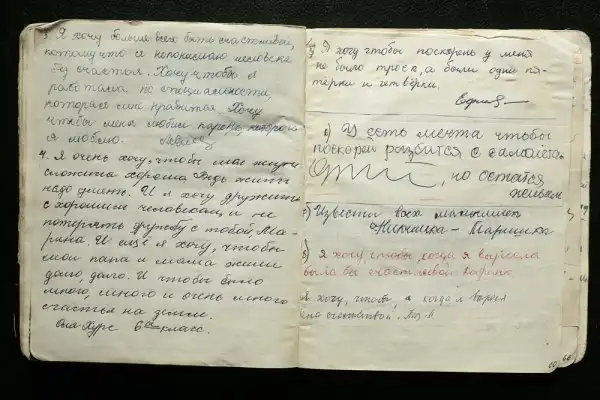 3. Я хочу больше всего быть счастливой,
потому что я не понимаю человека
без счастья. Хочу чтобы я
работала по специальности,
которая мне нравится. Хочу
чтобы меня любил парень, которого
я люблю.
4. Я очень хочу, чтобы моя жизнь
сложилась хорошо. Ведь жить
надо уметь. И я хочу дружить
с хорошим человеком, и не
потерять дружбу с тобой, Ма-
рина. И ещё я хочу, чтобы
мои папа и мама жили
долго, долго. И чтобы было
много, много и очень много
счастья на земле.
6 класс.
Я хочу чтобы поскорей у меня
не было троек, а были одни пя-
тёрки и четвёрки.
У есть мечта чтобы
поскорей разбится с самолёта
, но остатся
живым
всех
Маришка
Я хочу, чтобы, когда я выросла
была бы счастливой
Я хочу, чтобы, я когда я
счастливой.